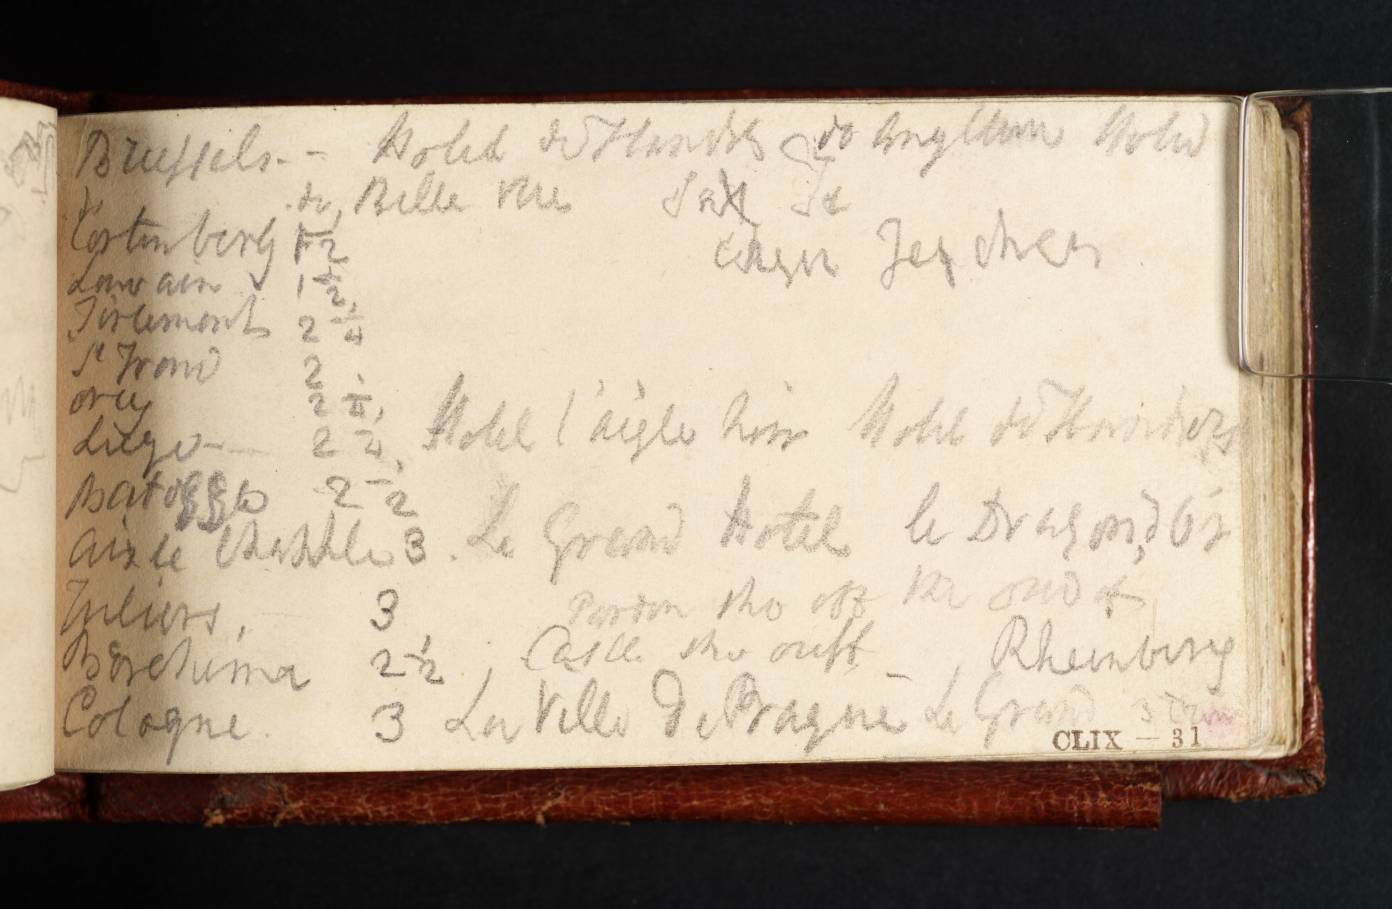 Brussels -- Hotel de Flandres do Angleterre Hotel
do Belle Vue
Cortenberg 1 1/2
Louvain 1 1/2
Tirlemont 2 1/4
St Trond 2
orey 2 1/4
Liege 2 1/4 Hotel l'aigle noir Hotel de Flandres
Battogglo 2 1/2
Aix le Chappelle 3 . Le Grand Hotel le Dragon d'Or
Juliers, 3 the off the end of
Berchima 2 1/2 Castle the Rheinberg
Cologne. 3 La Ville De Prague Le Grand
CLIX - 31